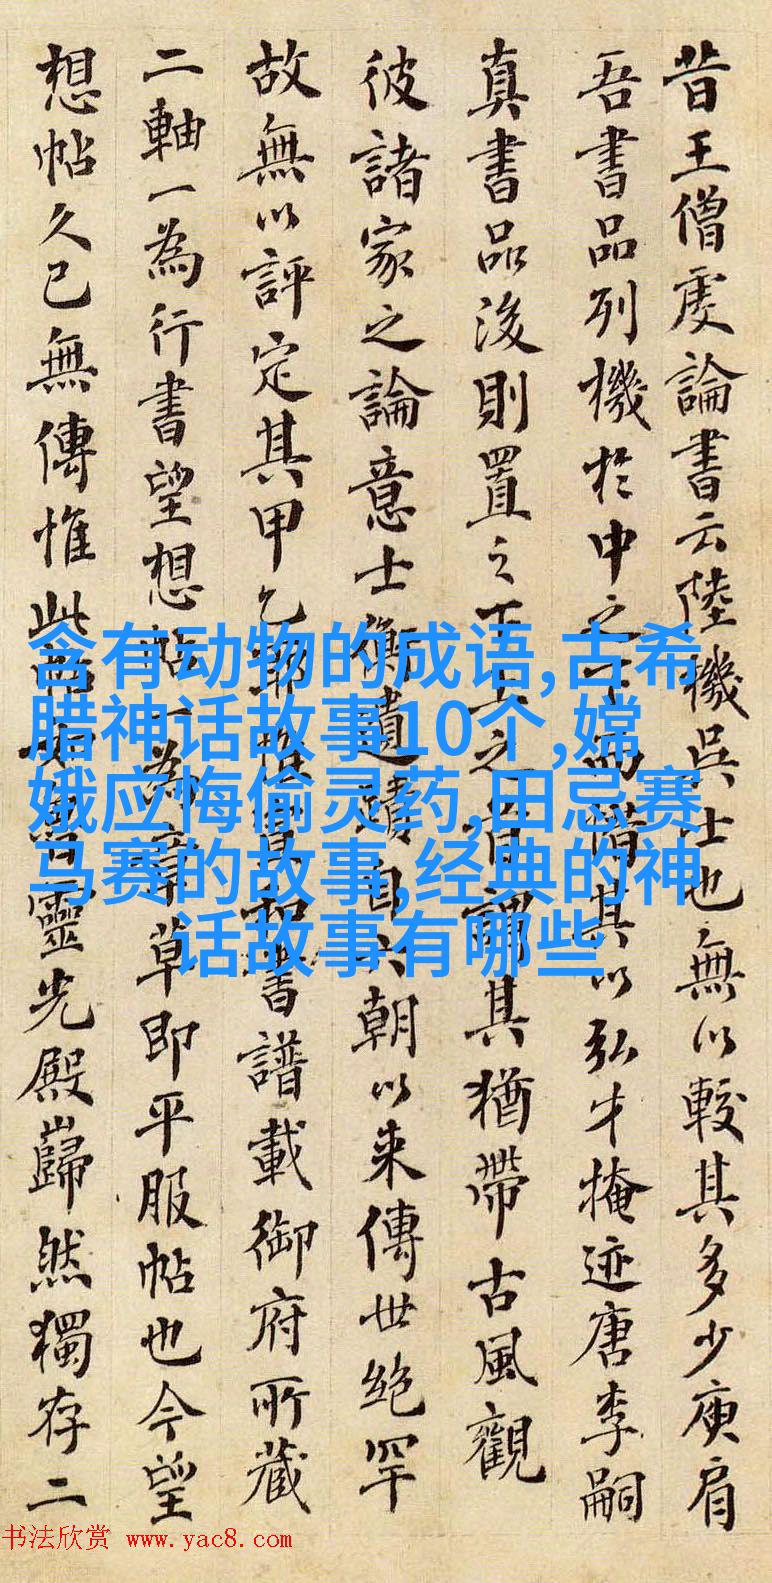 昔王僧虔論書云陸機吳士也無以較其多少庾肩
吾書品列機於中之下而惜其以弘才掩迹唐李嗣
真書品後則置之下上之首謂其猶帶古風觀
彼諸家之論意士衡遺蹟自六朝以来傳世絶罕
故無以評定其甲乙耶惟宣和書譜載御府所藏
二軸一為行書望想帖一為章草即平服帖也今望
想帖久已無傳惟此帖如魯靈光殿巋然獨存二
含有动物的成语,古希
腊神话故事10个,嫦
娥应悔偷灵药,田忌赛
马赛的故事,经典的神
话故事有哪些
书法欣赏 www.yac8.com